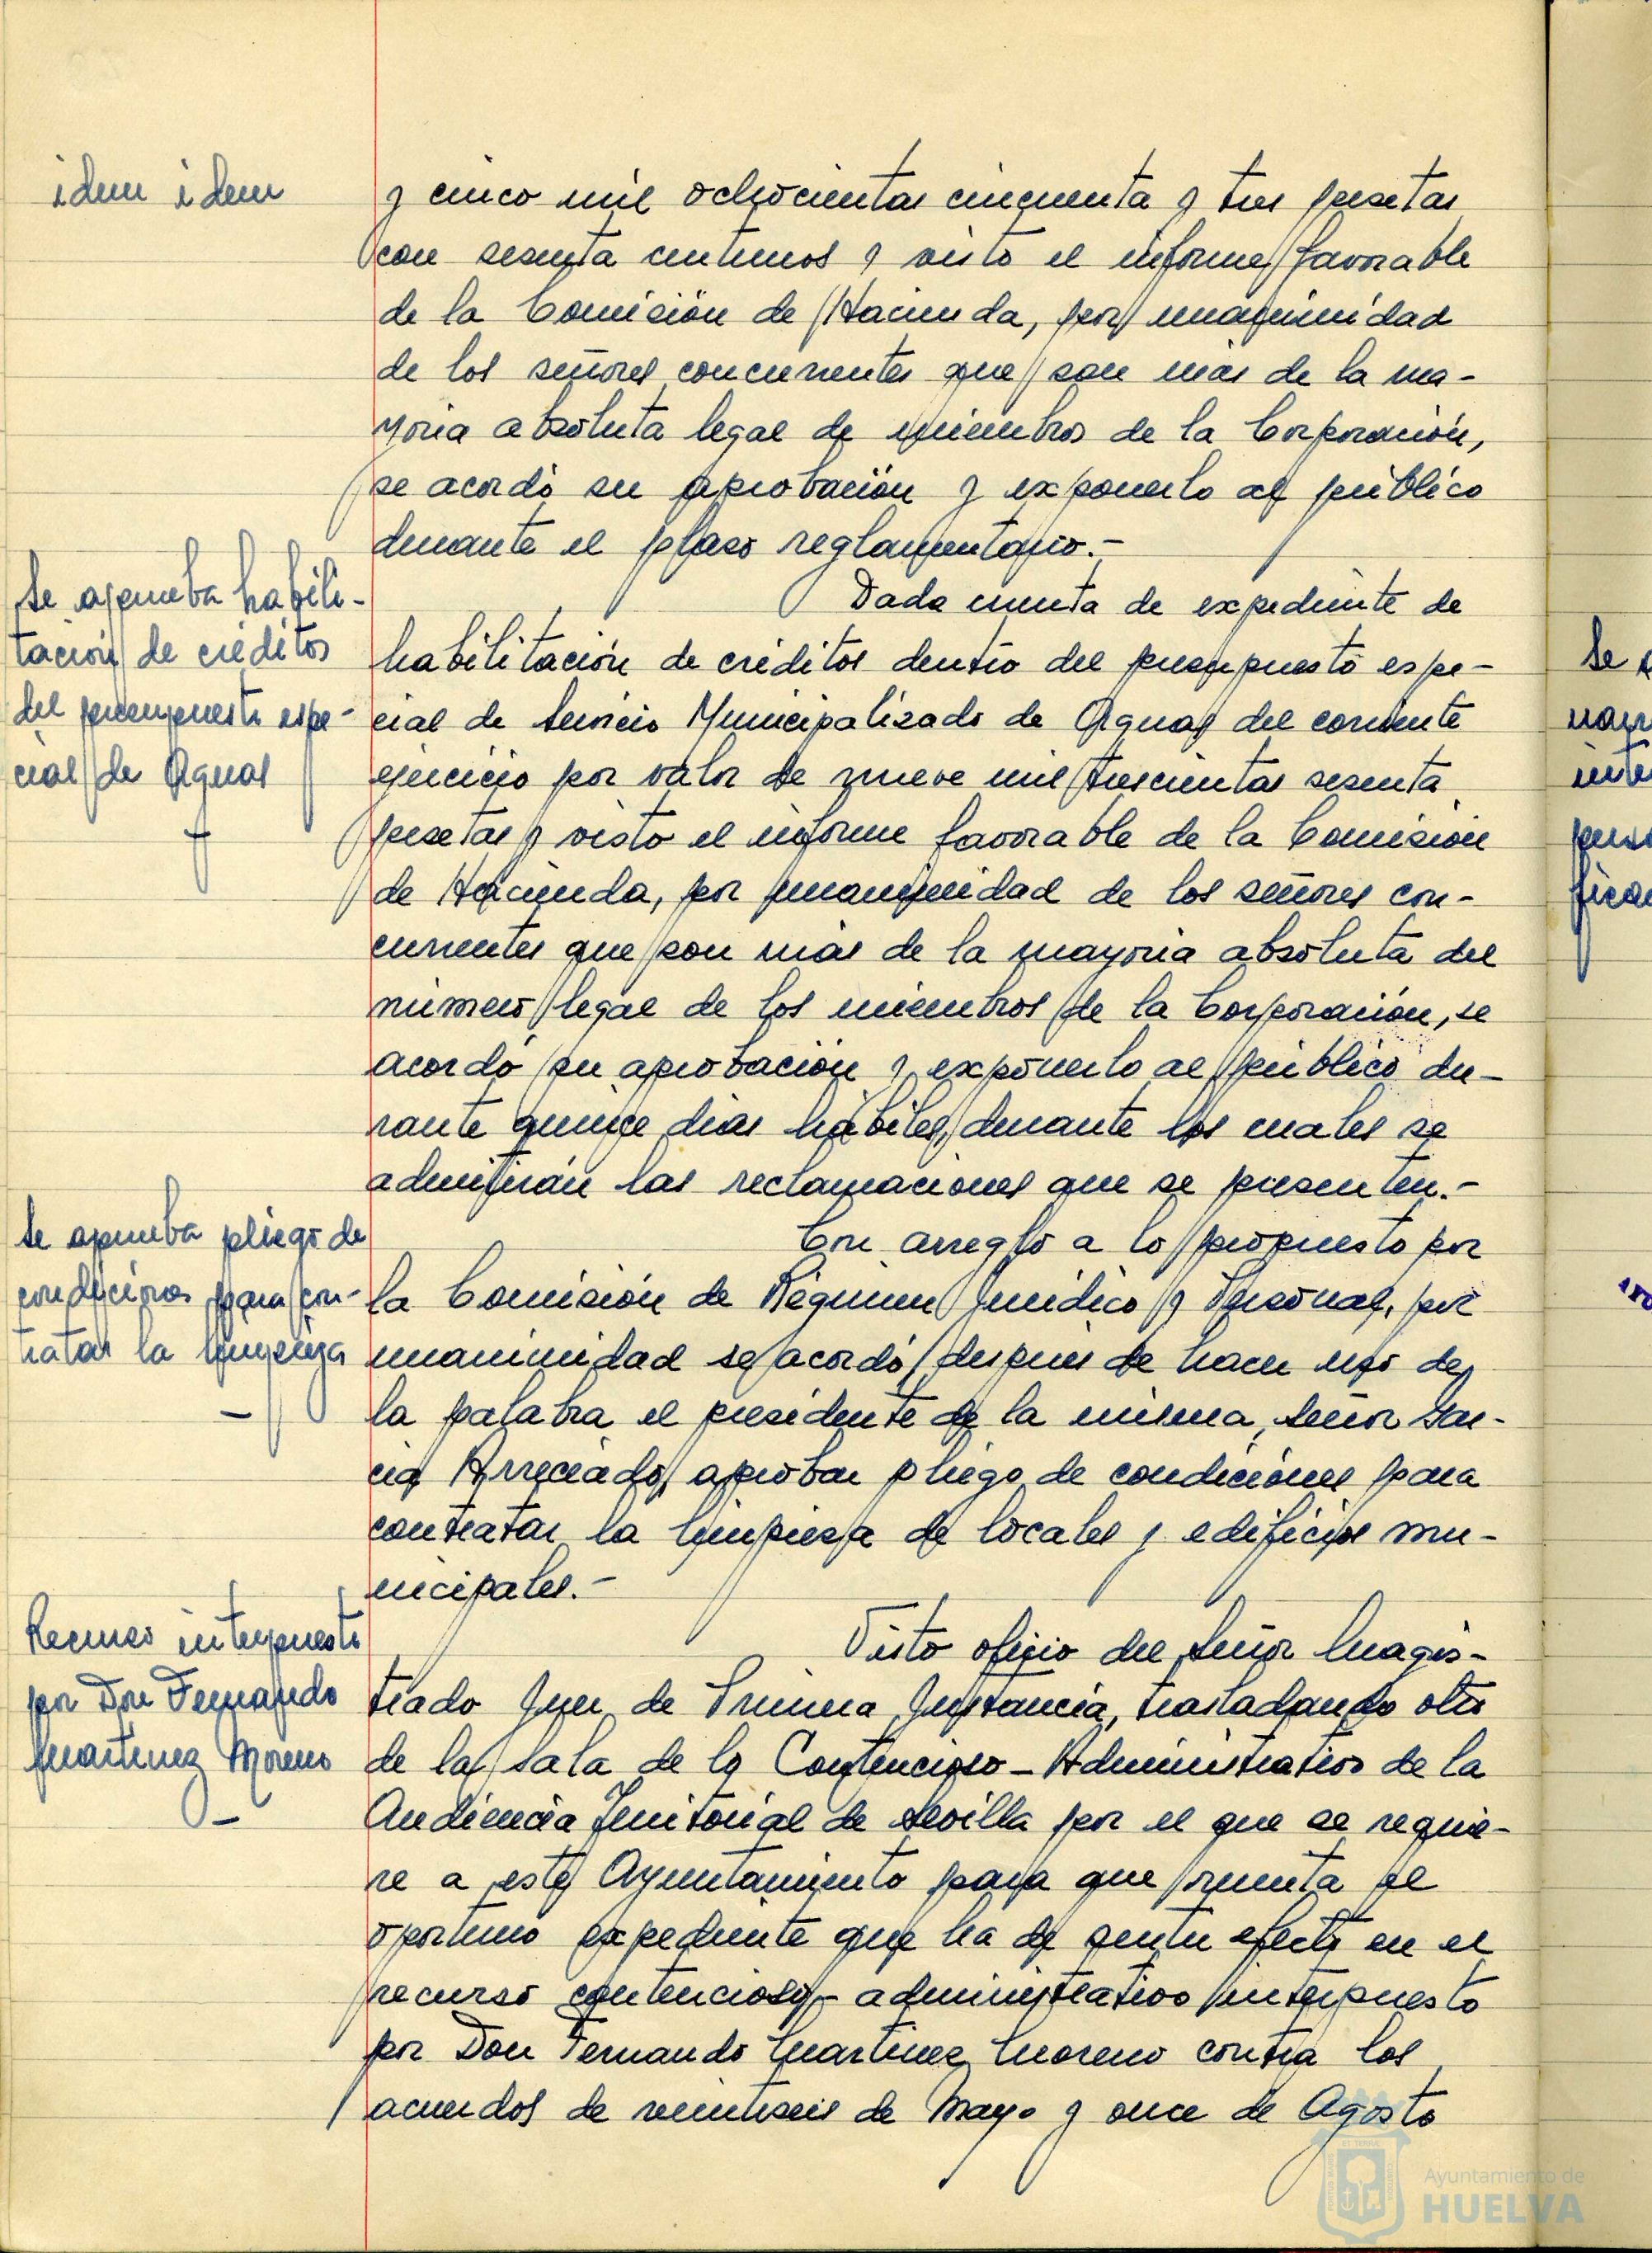 idem idem
y cinco mil ochocientas cincuenta y tres pesetas
con sesenta centimos y visto el informe favorable
de la Comisión de Hacienda, por unanimidad
de los señores concurrentes que son más de la ma-
yoria absoluta legal de miembros de la Corporación,
se acordó su aprobación y exponerlo al público
durante el plazo reglamentario.-
Se aprueba habili-
tación de créditos
del presupuesto espe-
cial de Aguas
Dada cuenta de expediente de
habilitación de créditos dentro del presupuesto espe-
cial de Servicio Municipalizado de Aguas del corriente
ejercicio por valor de nueve mil trescientas sesenta
pesetas y visto el informe favorable de la Comisión
de Hacienda, por unanimidad de los señores con-
currentes que son más de la mayoria absoluta del
número legal de los miembros de la Corporación, se
acordó su aprobación y exponerlo al público du-
rante quince dias hábiles, durante los cuales se
admitirán las reclamaciones que se presenten.-
Se aprueba pliego de
condiciones para con-
tratar la limpieza
Con arreglo a lo propuesto por
la Comisión de Régimen Juridico y Personal, por
unanimidad se acordó, despues de hacer uso de
la palabra el presidente de la misma, Señor Gar-
cia Arreciado, aprobar pliego de condiciones para
contratar la limpieza de locales y edificios mu-
nicipales.-
Recurso interpuesto
por Don Fernando
Martinez Moreno
Visto oficio del Señor Magis-
trado Juez de Primera Instancia, trasladando otro
de la Sala de lo Contencioso-Administrativo de la
Audiencia Territorial de Sevilla por el que se requie-
re a este Ayuntamiento para que remita el
oportuno expediente que ha de surtir efecto en el
recurso contencioso-administrativo interpuesto
por Don Fernando Martinez Moreno contra los
acuerdos de veintiseis de Mayo y once de Agosto
Se
Ayuntamiento de
HUELVA